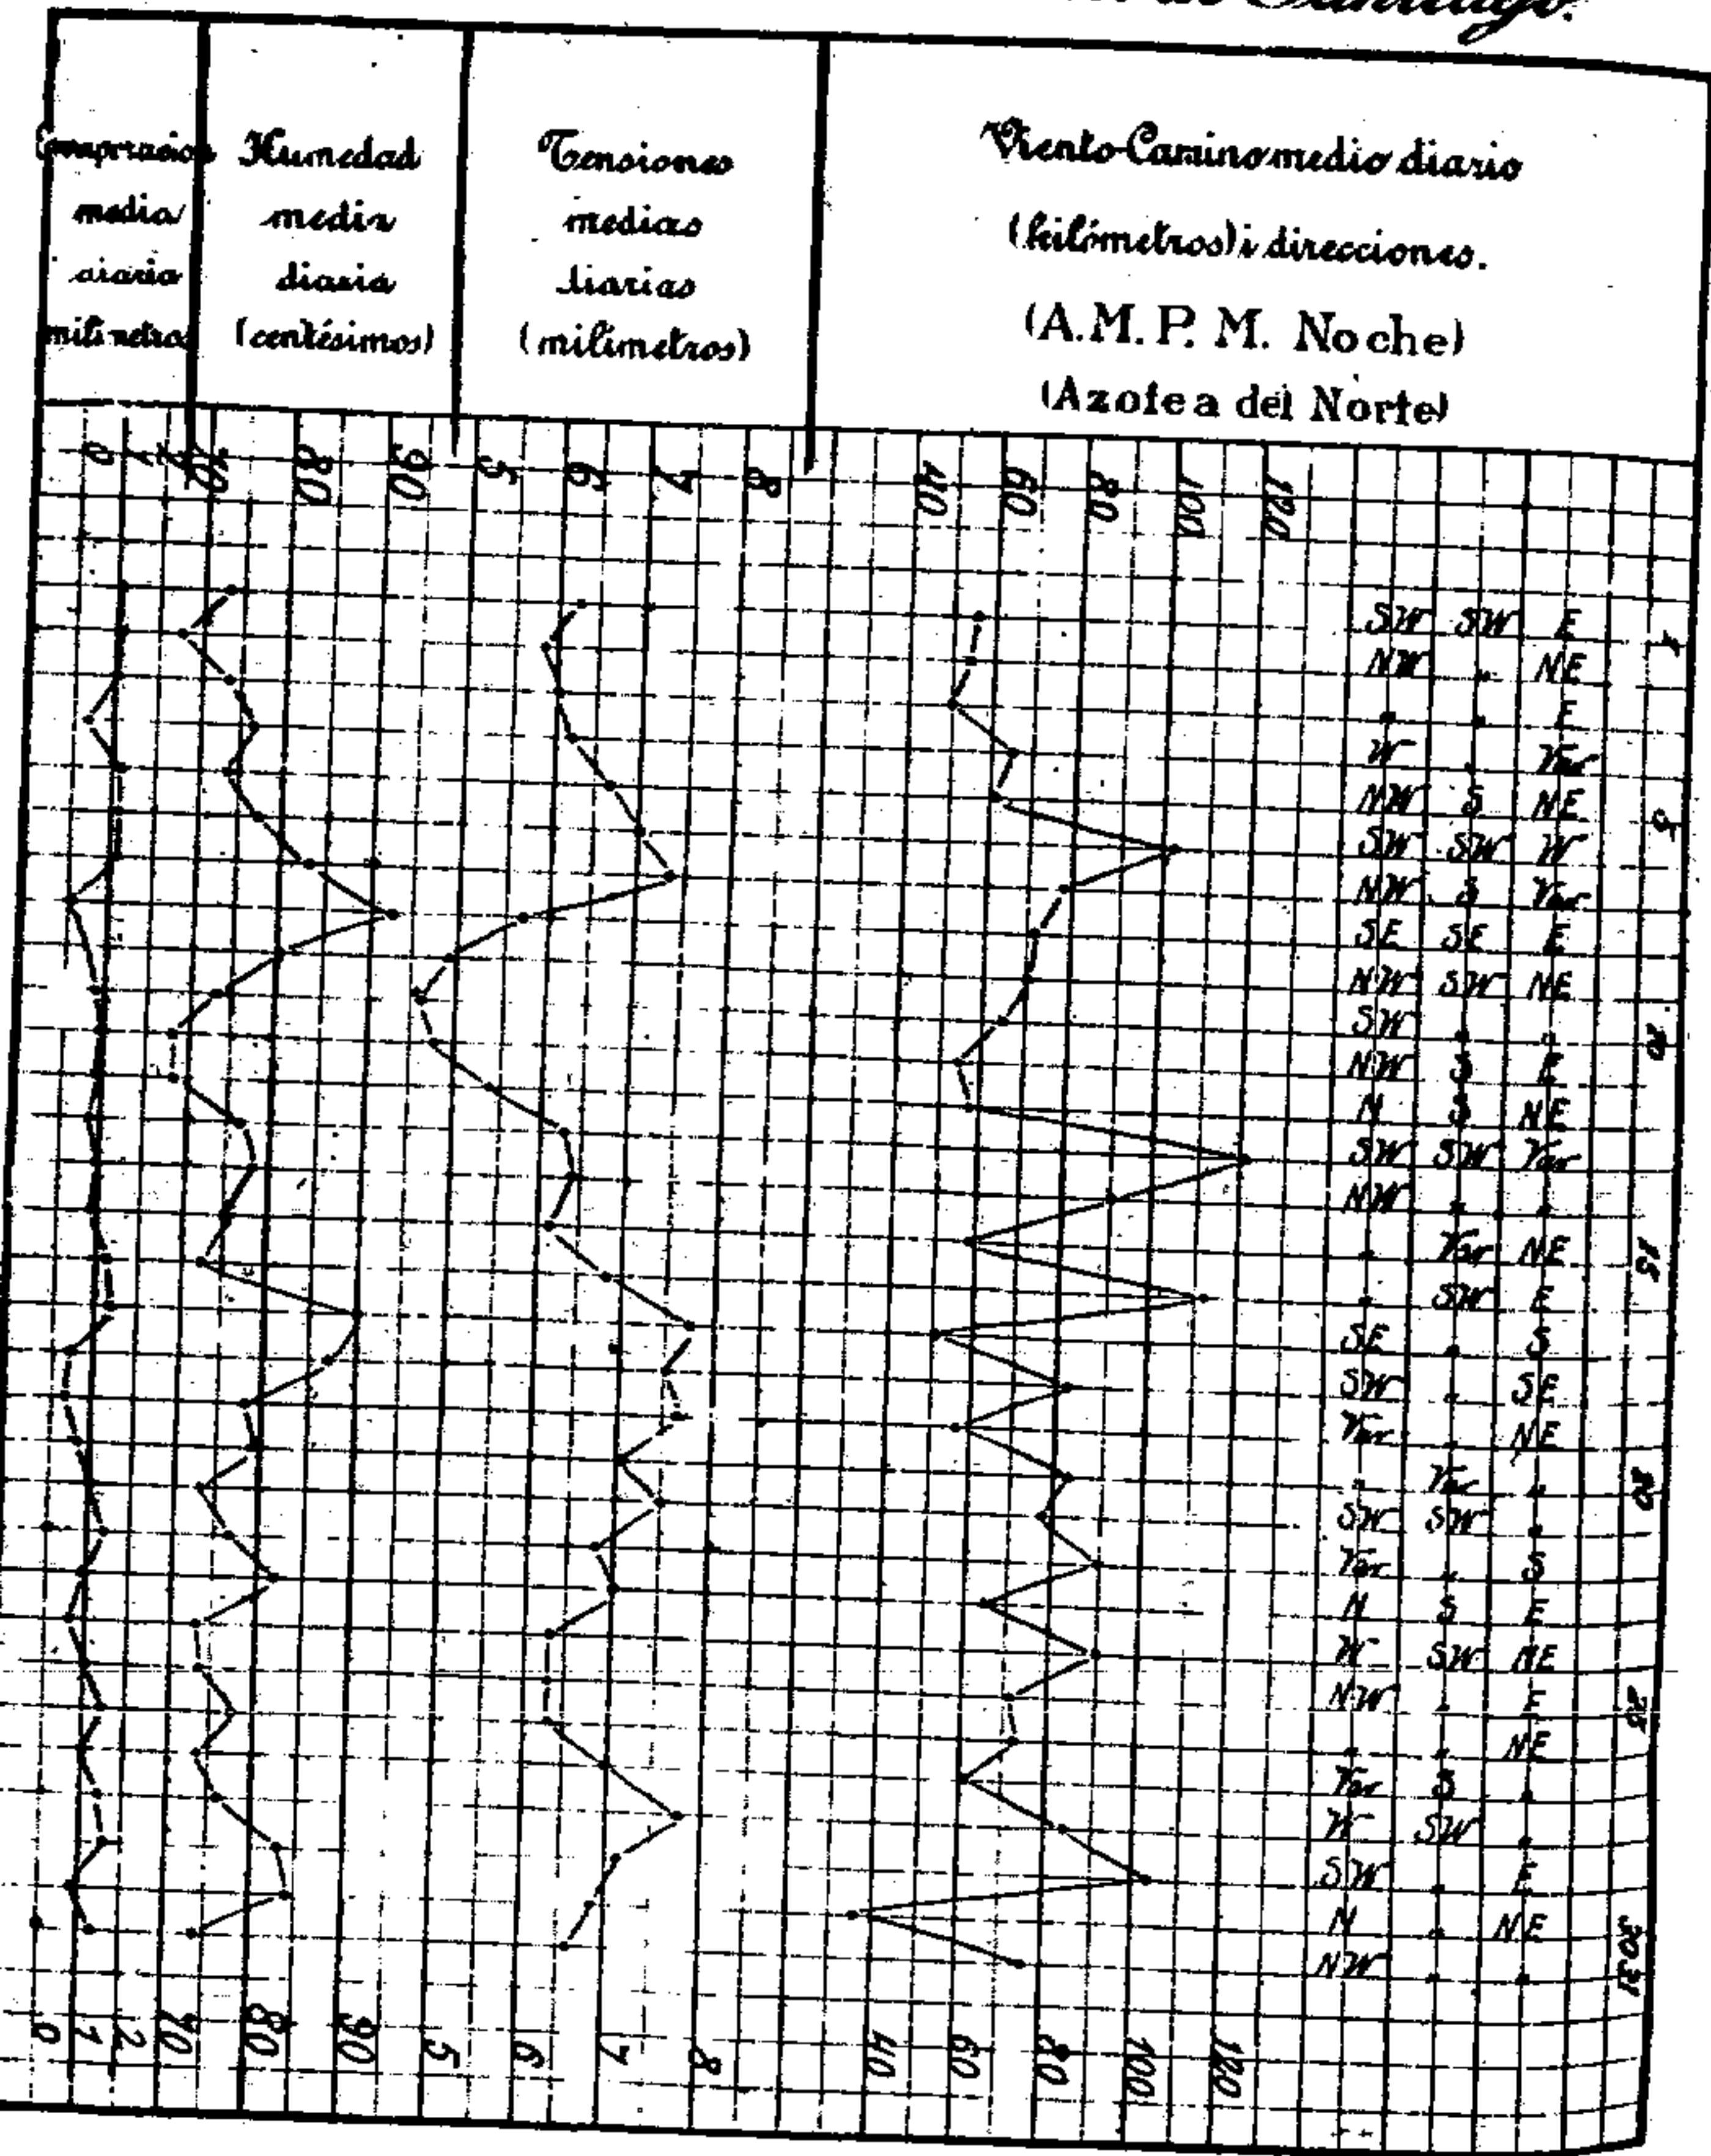 Santiago.
media
diaria
milimetros
Humedad
media
diaria
(centésimos)
Tensiones
medias
diarias
(milimetros)
Viento-Camino medio diario
(kilómetros) i direcciones.
(A.M. P. M. Noche)
(Azotea del Norte)
0 1 2 70 80 90 5 6 7 8 40 60 80 100 120
SW SW E 1
NW " NE
" " E
W " Var
NW S NE 5
SW SW W
NW S Var
SE SE E
NW SW NE
SW " " 10
NW S E
N S NE
SW SW Var
NW " "
" Var NE 15
" SW E
SE " S
SW " SE
Var " NE
" Var " 20
SW SW "
Var " S
N S E
W SW NE
NW " E 25
" " NE
Var S "
W SW "
SW " E
N " NE 30
NW " " 31
0 1 2 70 80 90 5 6 7 8 40 60 80 100 120